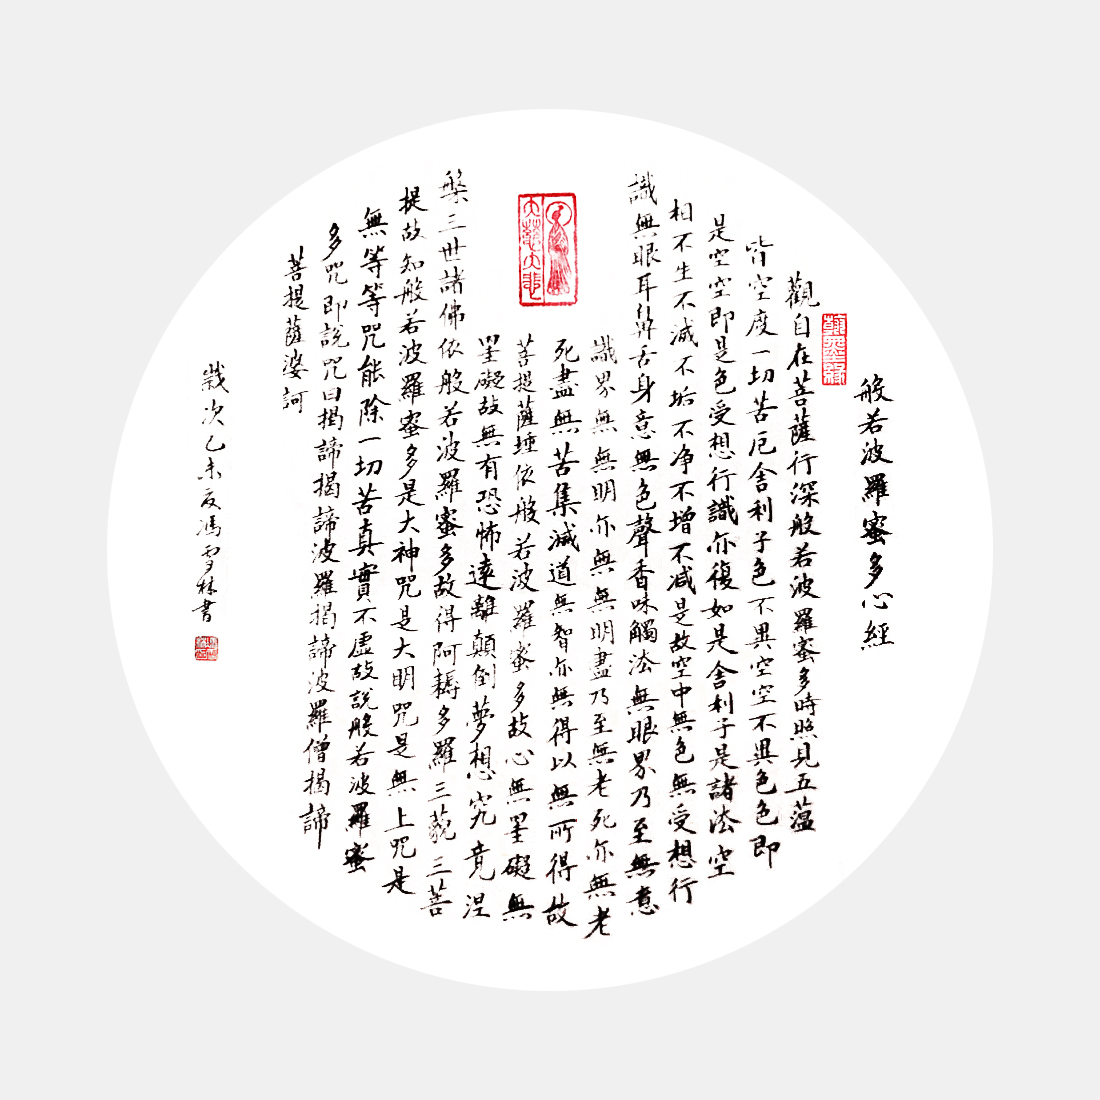 般若波羅蜜多心經
觀自在菩薩行深般若波羅蜜多時照見五蘊
皆空度一切苦厄舍利子色不異空空不異色色即
是空空即是色受想行識亦復如是舍利子是諸法空
相不生不滅不垢不净不增不减是故空中無色無受想行
識無眼耳鼻舌身意無色聲香味觸法無眼界乃至無意
識界無無明亦無無明盡乃至無老死亦無老
死盡無苦集滅道無智亦無得以無所得故
大慈大悲
菩提薩埵依般若波羅蜜多故心無罣礙無
罣礙故無有恐怖遠離顛倒夢想究竟涅
槃三世諸佛依般若波羅蜜多故得阿耨多羅三藐三菩
提故知般若波羅蜜多是大神咒是大明咒是無上咒是
無等等咒能除一切苦真實不虛故說般若波羅蜜
多咒即說咒曰揭諦揭諦波羅揭諦波羅僧揭諦
菩提薩婆訶
歲次乙未夏馮雪林書